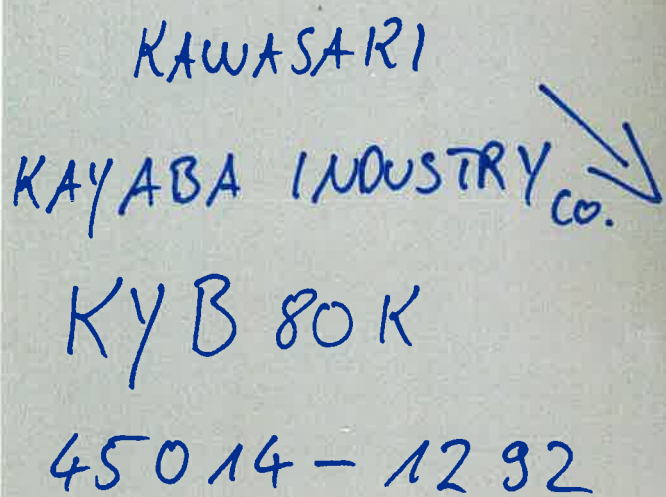 KAWASARI
KAYABA INDUSTRY CO.
KYB 80K
45014-1292